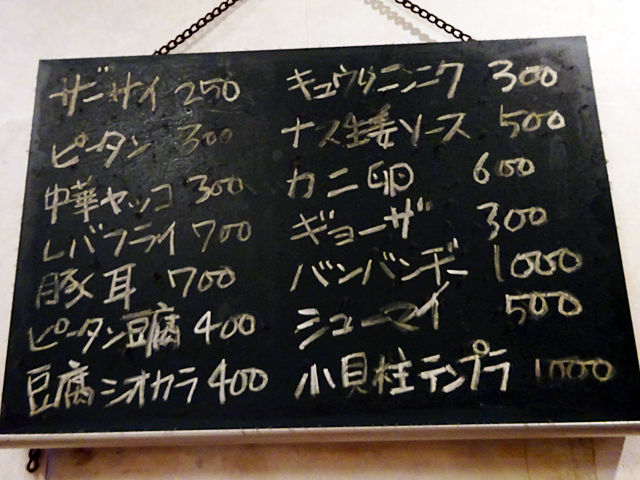 ザーサイ 250
ピータン 300
中華ヤッコ 300
レバフライ 700
豚耳 700
ピータン豆腐 400
豆腐シオカラ 400
キュウリニンニク 300
ナス生姜ソース 500
カニ卵 600
ギョーザ 300
バンバンヂー 1000
シューマイ 500
小貝柱テンプラ 1000